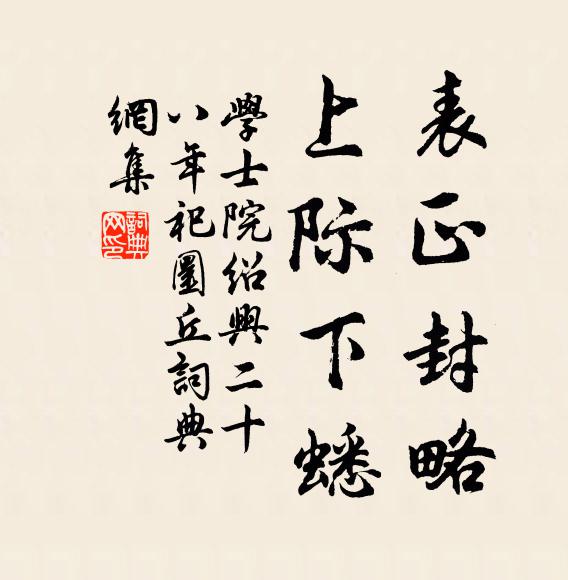 表正封略
上际下蟋
學士院绍興二十
八年祀圜丘詞典
網集
詞典
网印